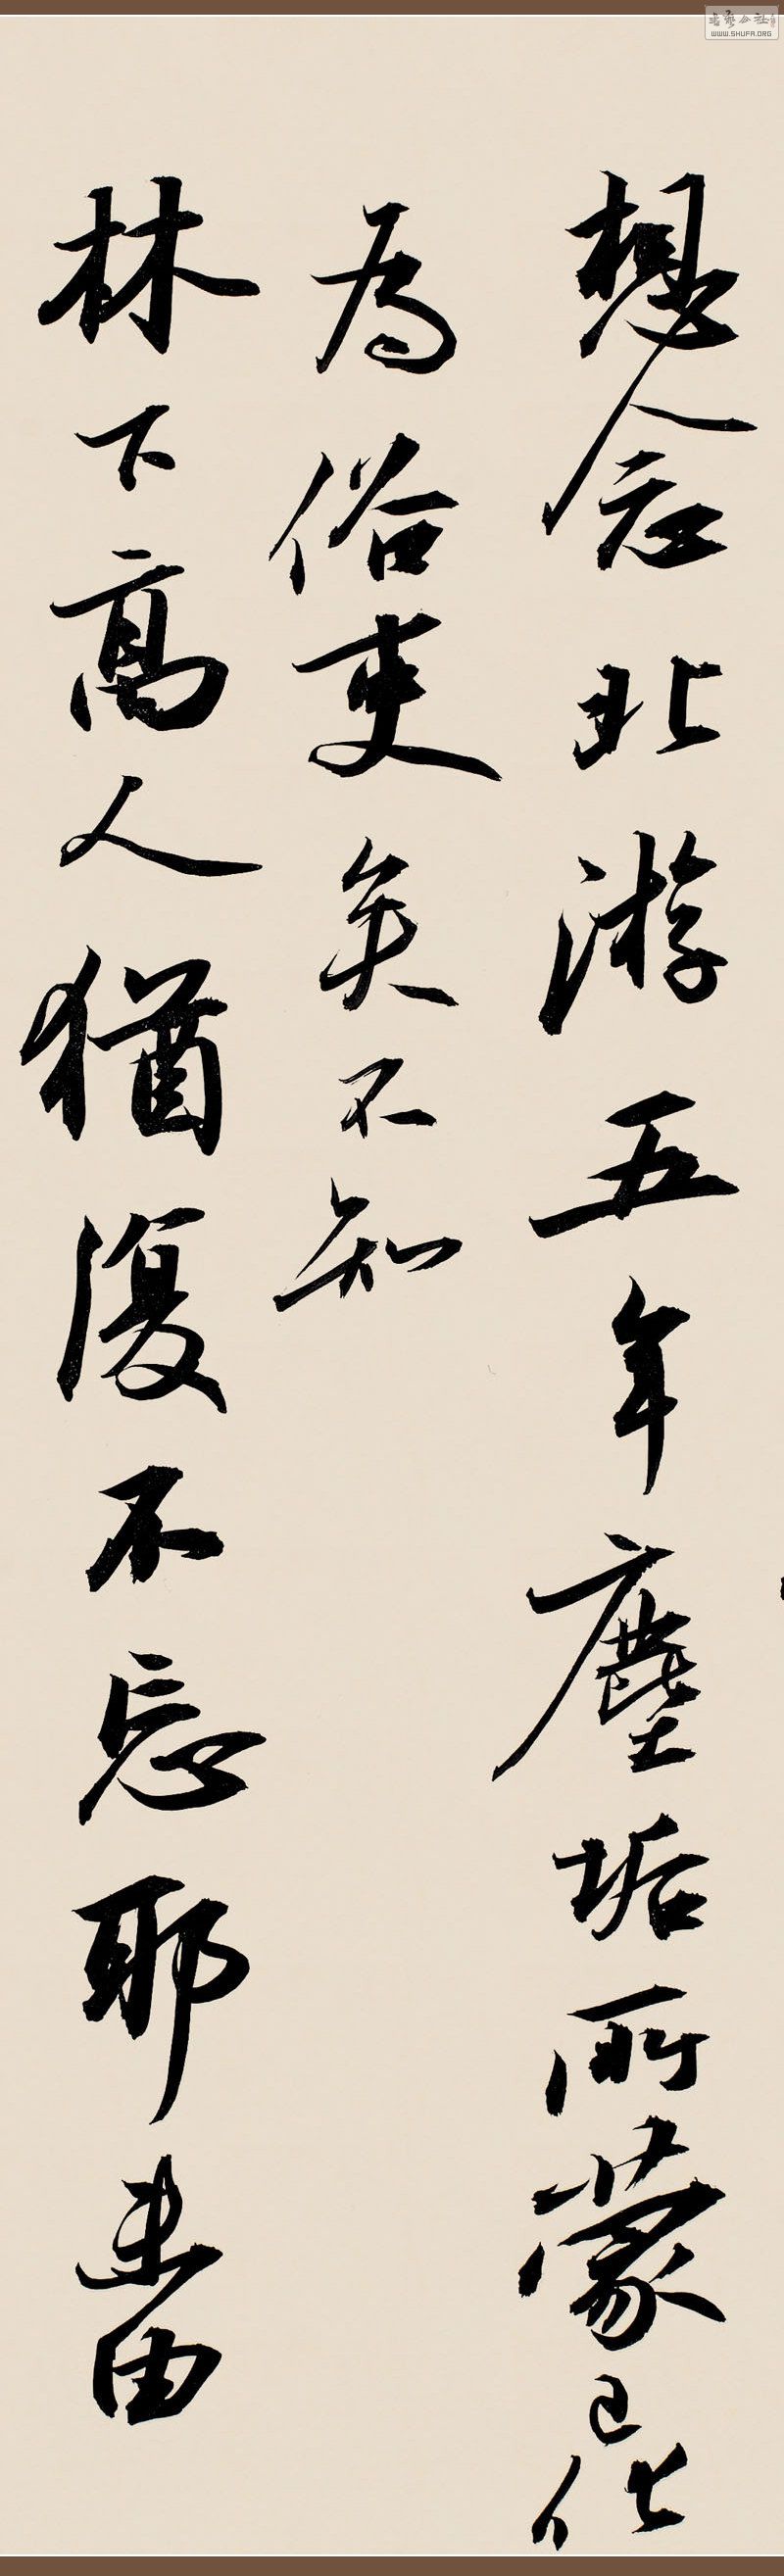 想念北游五年塵垢所蒙已化
為俗吏矣不知
林下高人猶復不忘耶未由
WWW.SHUFA.ORG